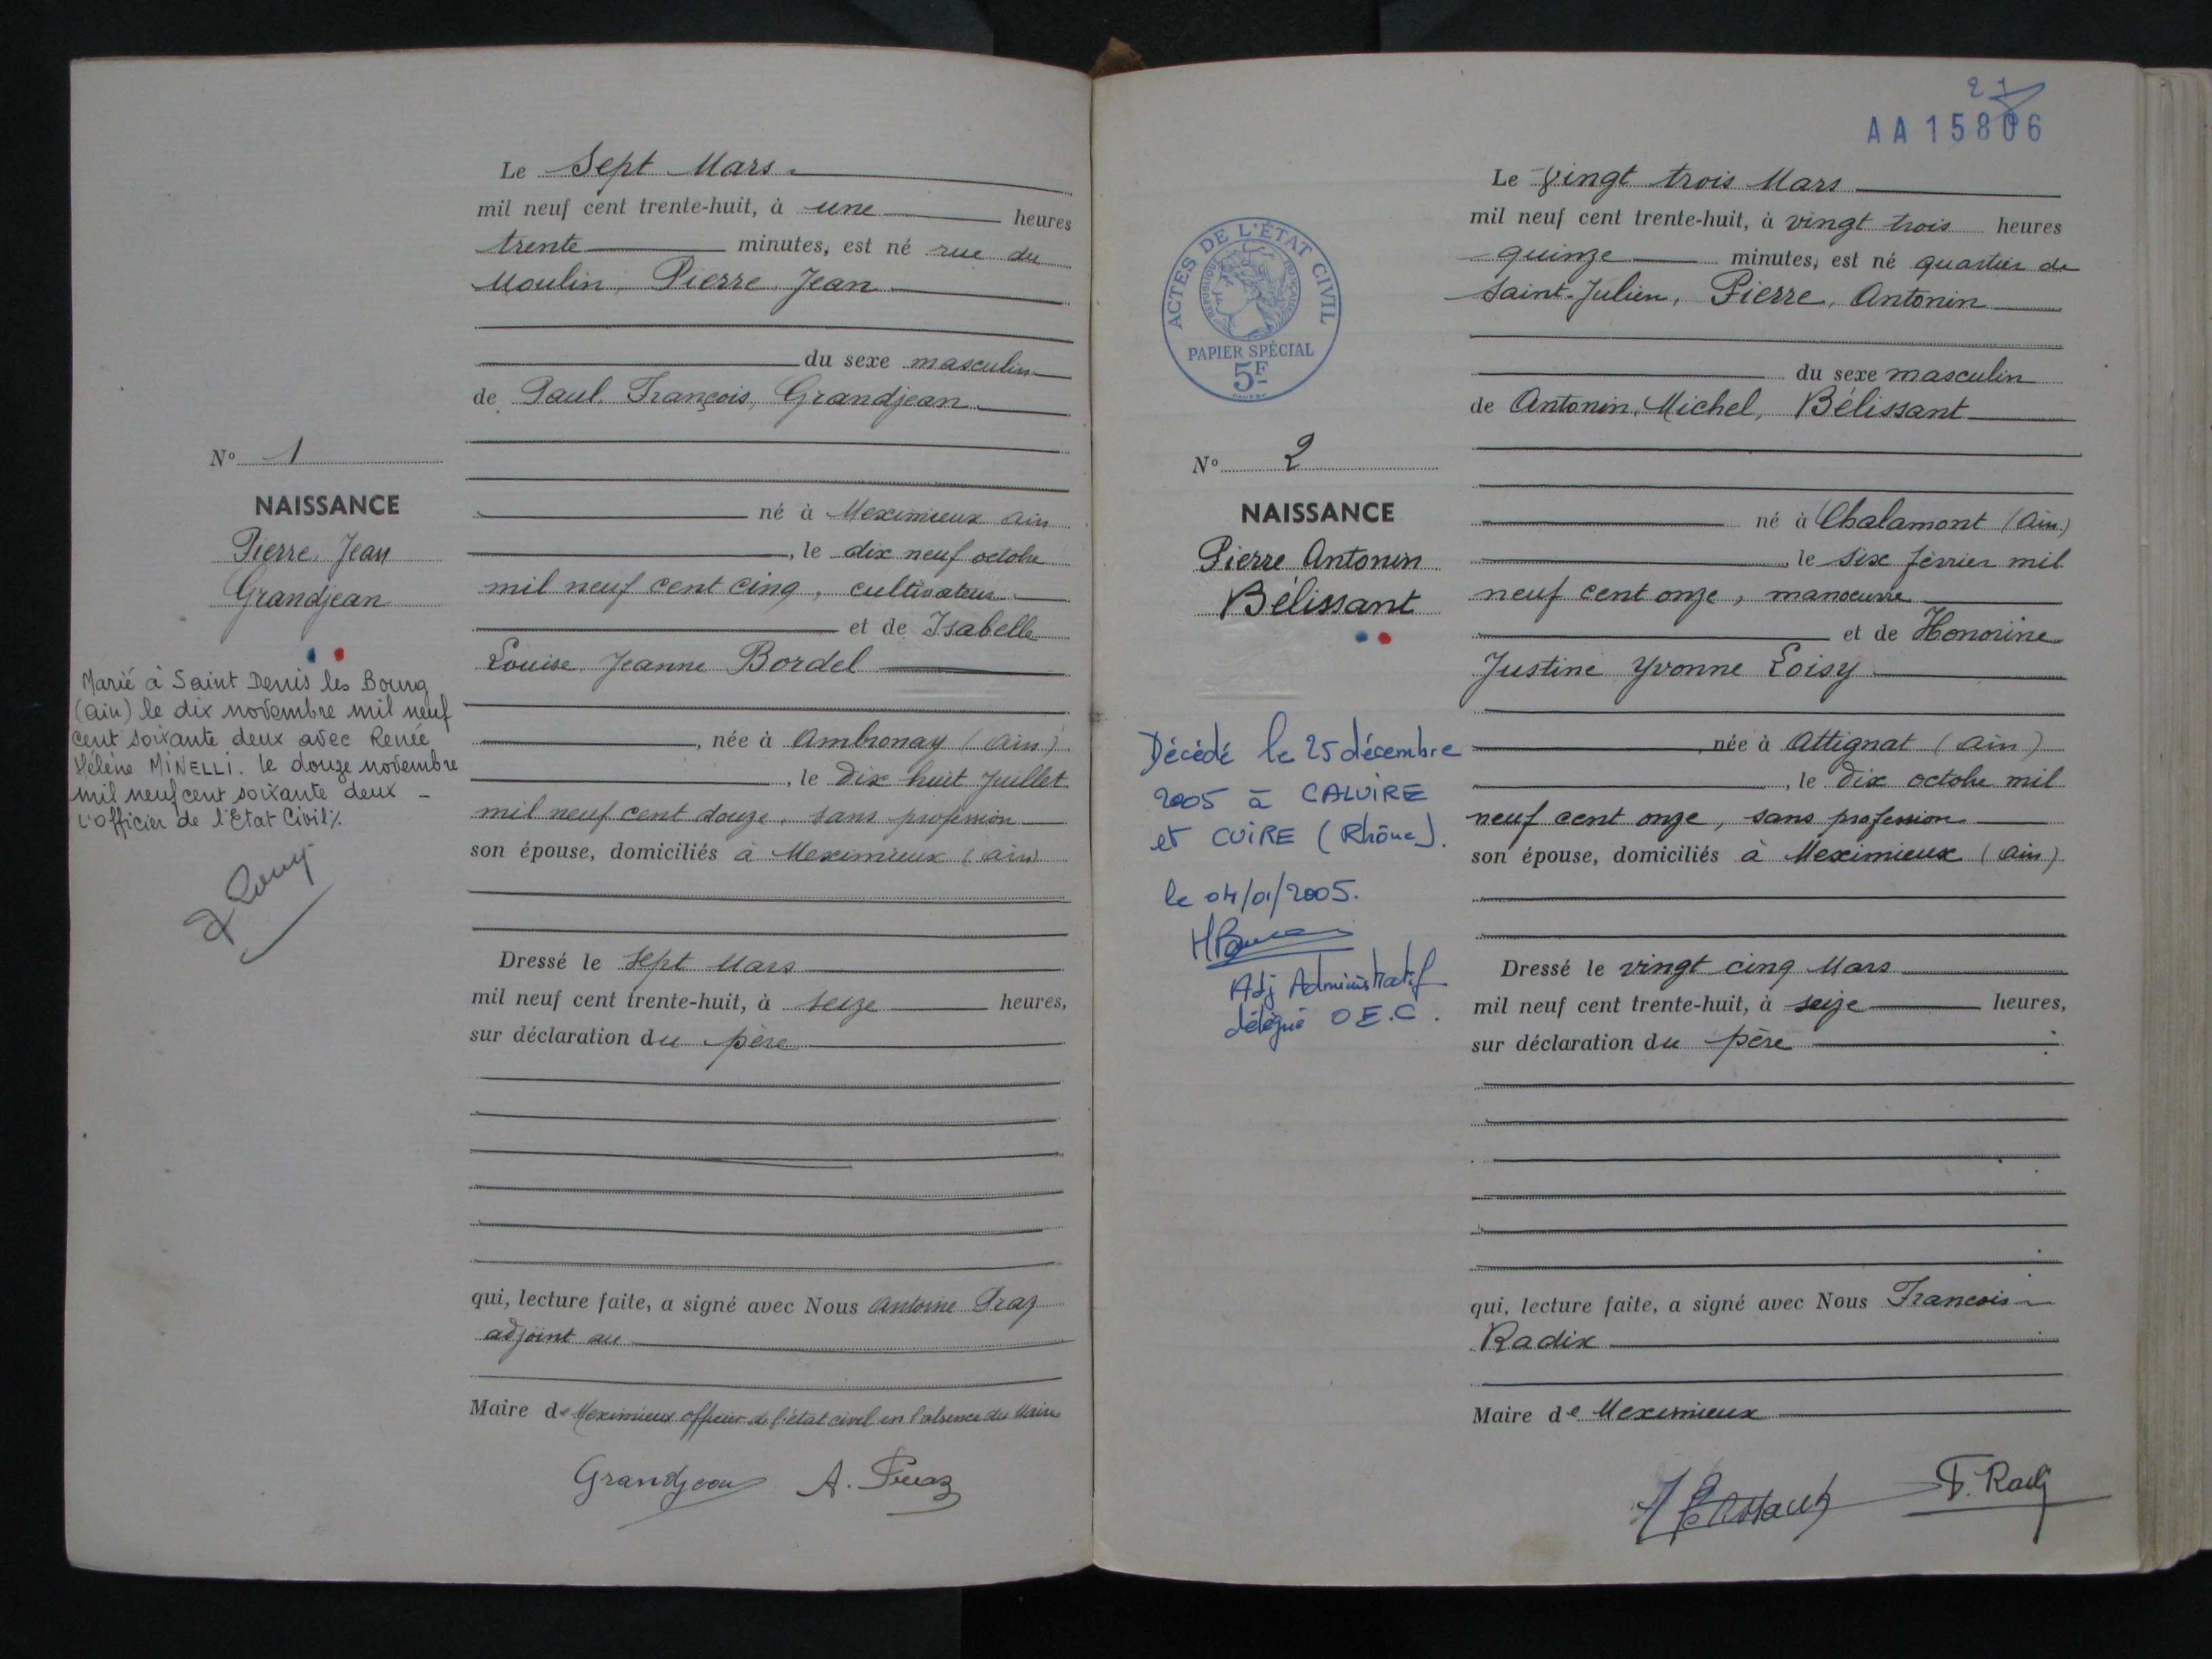 Le Sept Mars
mil neuf cent trente-huit, à une heures
trente minutes, est né rue du
Moulin, Pierre Jean
du sexe masculin
de Paul, François, Grandjean
né à Meximieux Ain
, le dix neuf octobre
mil neuf cent cinq, cultivateur
et de Isabelle
Louise Jeanne Bordel
, née à Ambronay (Ain)
, le Dix huit Juillet
mil neuf cent douze, sans profession
son épouse, domiciliés à Meximieux (Ain)
Dressé le Sept Mars
mil neuf cent trente-huit, à seize heures,
sur déclaration du père
qui, lecture faite, a signé avec Nous Antoine
adjoint au
Maire de Meximieux officier de l'état civil en l'absence du Maire
Grandjean A.
N° 1
NAISSANCE
Pierre, Jean
Grandjean
Marié à Saint Denis les Bourg
(Ain) le dix novembre mil neuf
cent soixante deux avec Renée
Hélène MINELLI. le douze novembre
mil neuf cent soixante deux _
L'Officier de l'Etat Civil ./.
27
AA 15806
ACTES DE L'ÉTAT CIVIL
RÉPUBLIQUE FRANÇAISE
PAPIER SPÉCIAL
5F
N° 2
NAISSANCE
Pierre Antonin
Bélissant
Décédé le 25 décembre
2005 à CALUIRE
et CUIRE (Rhône).
le 04/01/2005.
Adj Administratif
délégué O E.C.
Le Vingt trois Mars
mil neuf cent trente-huit, à vingt trois heures
quinze minutes, est né quartier de
Saint-Julien, Pierre, Antonin
du sexe masculin
de Antonin, Michel, Bélissant
né à Chalamont (Ain)
, le six février mil
neuf cent onze, manoeuvre
et de Honorine
Justine Yvonne Loisy
, née à Attignat (Ain)
, le Dix octobre mil
neuf cent onze, sans profession
son épouse, domiciliés à Meximieux (Ain)
Dressé le vingt cinq Mars
mil neuf cent trente-huit, à seize heures,
sur déclaration du père
qui, lecture faite, a signé avec Nous Francois
Radix
Maire de Meximieux
F. Radix